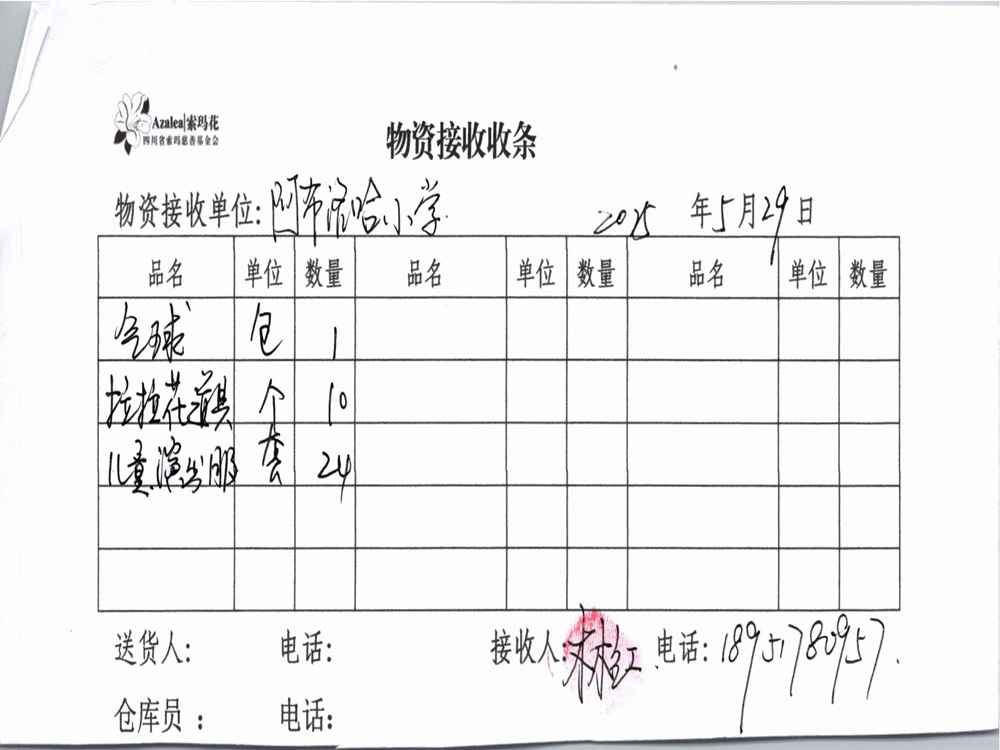 Azalea|索玛花
四川省索玛慈善基金会
物资接收收条
物资接收单位:阿布洛哈小学 2025 年5月29日
品名 单位 数量 品名 单位 数量 品名 单位 数量
气球 包 1
拉拉花道具 个 10
儿童演出服 套 24
送货人: 电话: 接收人: 电话:18951780957.
仓库员: 电话: